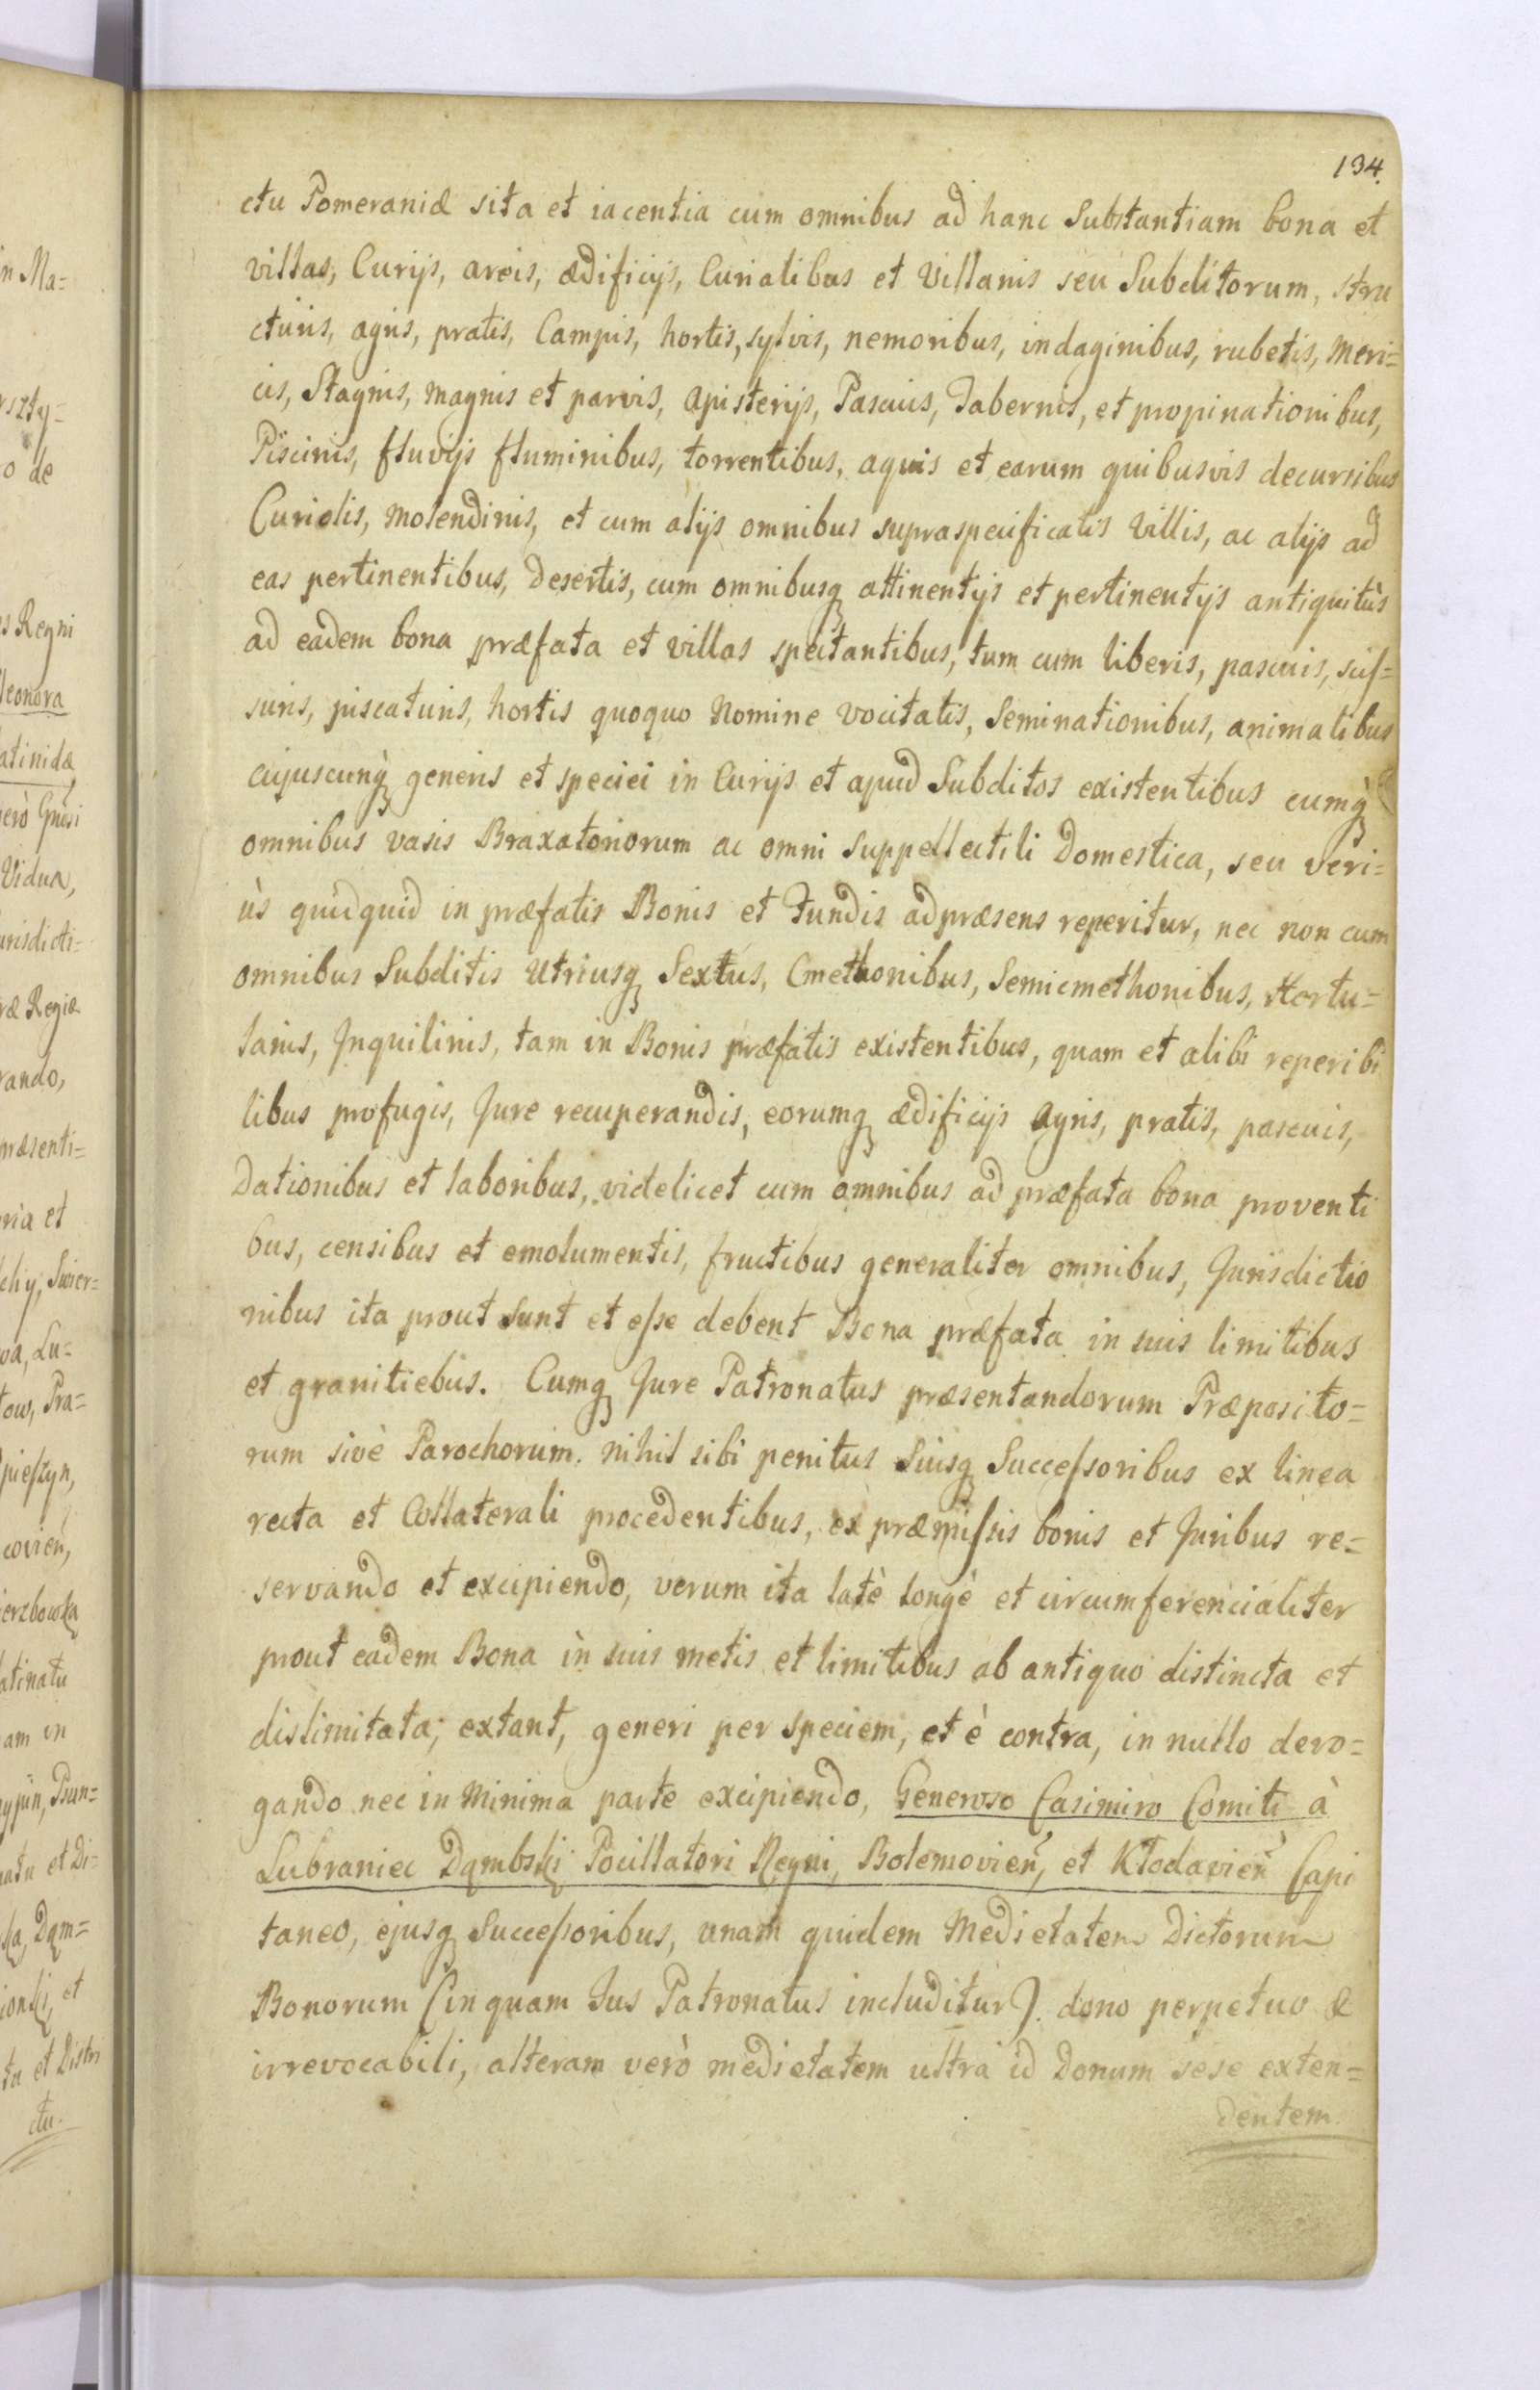 134.
ctu Pomeraniæ sita et iacentia cum omnibus ad hanc Substantiam bona et
villas, Curijs, areis, ædificijs, Curialibus et Villanis seu Subditorum, stru
cturis, agris, pratis, Campis, hortis, sylvis, nemoribus, indaginibus, rubetis, Meri=
cis, Stagnis, magnis et parvis, apisterijs, Pascuis, Tabernis, et propinationibus,
Piscinis, fluvijs fluminibus, torrentibus, aquis et earum quibusvis decursibus
Curiolis, Molendinis, et cum alijs omnibus supraspecificatis Villis, ac alijs ad
eas pertinentibus, Desertis, cum omnibusq attinentijs et pertinentijs antiquitùs
ad eadem bona præfata et villas spectantibus, tum cum liberis, pascuis, scis=
suris, piscaturis, hortis quoquo Nomine Vocitatis, Seminationibus, animalibus
cujuscunq̀ generis et speciei in Curijs et apud Subditos existentibus cumq̀
omnibus vasis Braxatoriorum ac omni Suppellectili Domestica, seu veri=
ùs quidquid in præfatis Bonis et Fundis adpræsens reperitur, nec non cum
omnibus Subditis Utriusq Sextús, Cmethonibus, Semicmethonibus, Hortu=
lanis, Inquilinis, tam in Bonis præfatis existentibus, quam et alibi reperibi
libus profugis, Jure recuperandis, eorumq ædificijs Agris, pratis, pascuis,
Dationibus et laboribus, videlicet cum omnibus ad præfata bona proventi
bus, censibus et emolumentis, fructibus generaliter omnibus, Jurisdictio
nibus ita prout Sunt et esse debent Bona præfata in suis limitibus
et granitiebus. Cumq Jure Patronatus præsentandorum Præposito=
rum sivè Parochorum. nihil sibi penitus Suisq Successoribus ex linea
recta et Collaterali procedentibus, ex præmissis bonis et Juribus re=
servando et excipiendo, verum ita latè longè et circumferencialiter
prout eadem Bona in suis metis et limitibus ab antiquo distincta et
dislimitata; extant, generi per speciem, et è contra, in nullo dero=
gando nec in Minima parte excipiendo, Generoso Casimiro Comiti à
Lubraniec Dąmbski Pocillatori Regni, Bolemovien̄, et Kłodavien̄ Capi
taneo, ejusq Successoribus, unam quidem Medietatem Dictorum
Bonorum (in quam Jus Patronatus includitur). dono perpetuo &
irrevocabili, alteram verò medietatem ultra id Donum sese exten=
dentem.
in Ma=
o de
s Regni
leonora
atinidæ
Vidua,
urisdicti=
ræ Regiæ
rando,
præsenti=
ria et
ehy, Swier=
va, Lu=
tow, Pra=
erzbowska
atinatu
am in
natu et Di=
ta et Distri
ctu.